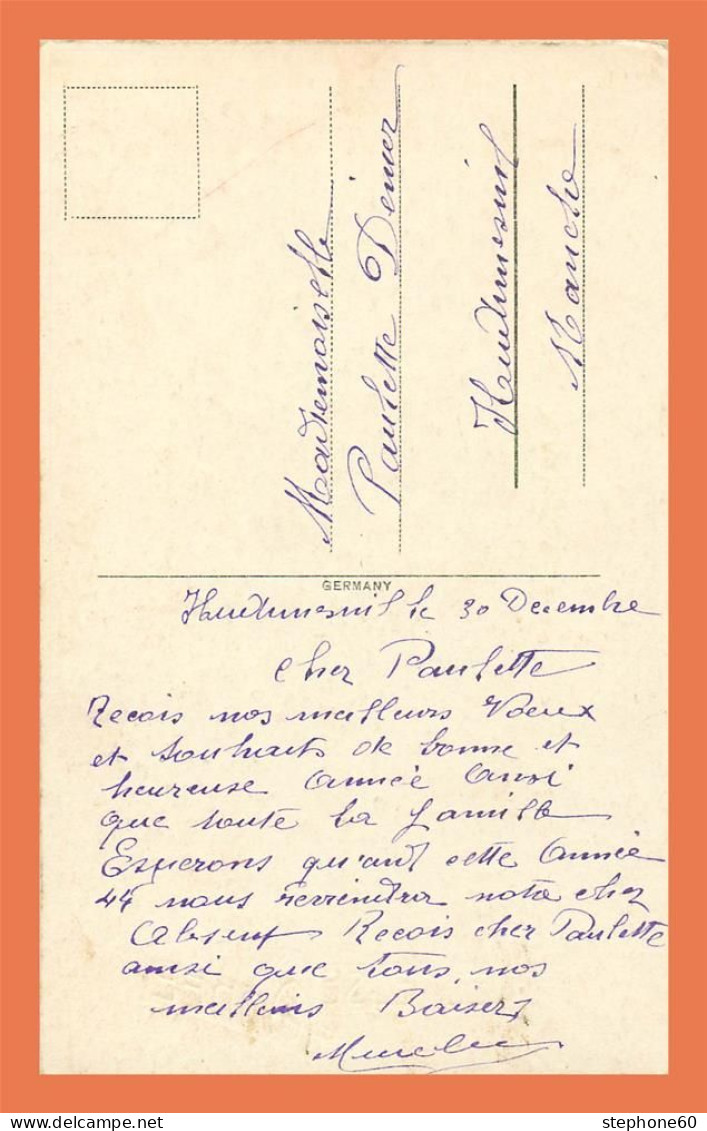 Mademoiselle
Paulette Denier
Hudimesnil
Manche
GERMANY
Hudimesnil le 30 Decembre
cher Paulette
Recois nos meilleurs Voeux
et souhaits de bonne et
heureuse année Ainsi
que toute la famille
Esperons qu'ant cette Année
44 nous reviendra notre cher
Absent Recois cher Paulette
ainsi que tous nos
meilleurs Baisers
stephone60